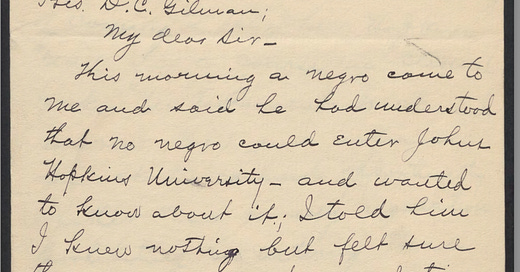 Pres. D. C. Gilman;
My dear Sir—
This morning a negro came to
me and said he had understood
that no negro could enter Johns
Hopkins University— and wanted
to know about it; I told him
I knew nothing but felt sure